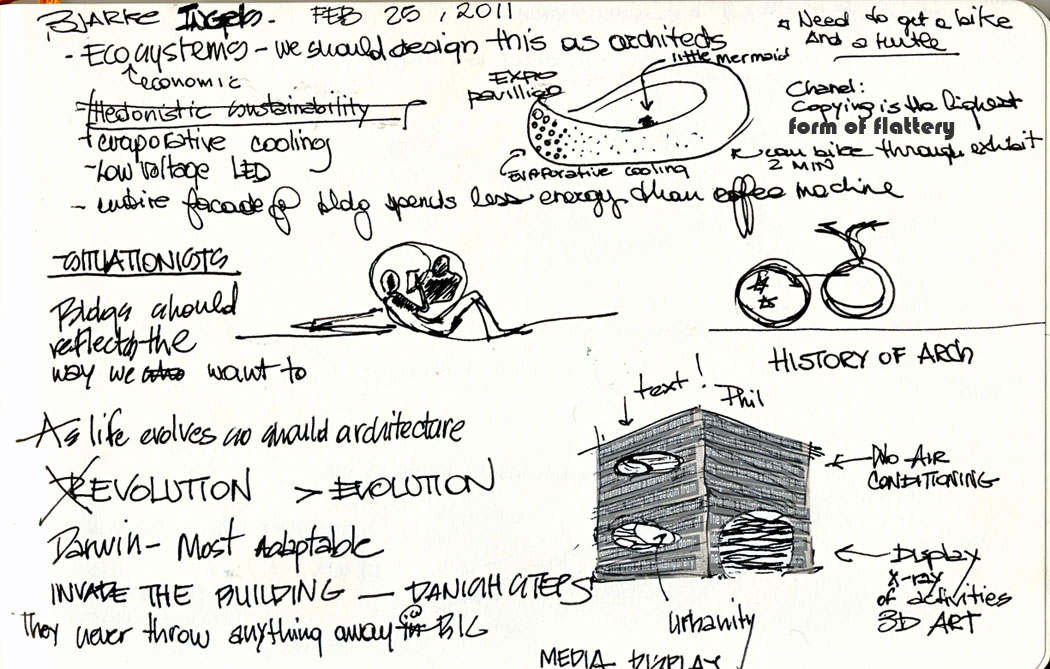 BJARKE Ingels. FEB 25, 2011
- ECOsystems - we should design this as architects
economic
Hedonistic sustainability
+ evaporative cooling
- Low voltage LED
- entire facade of bldg spends less energy than coffee machine
EXPO
pavillion
little mermaid
evaporative cooling
Need to get a bike
And a turtle
Chanel:
Copying is the highest
form of flattery
can bike through exhibit
2 MIN
SITUATIONISTS
Bldgs should
reflect the
way we want to
As life evolves so should architecture
REVOLUTION > EVOLUTION
Darwin - Most Adaptable
INVADE THE BUILDING — DANISH STEPS
They never throw anything away in BIG
HISTORY OF ARCH
text!
Phil
NO AIR
CONDITIONING
Display
X-ray
of activities
3D ART
urbanity
MEDIA DISPLAY